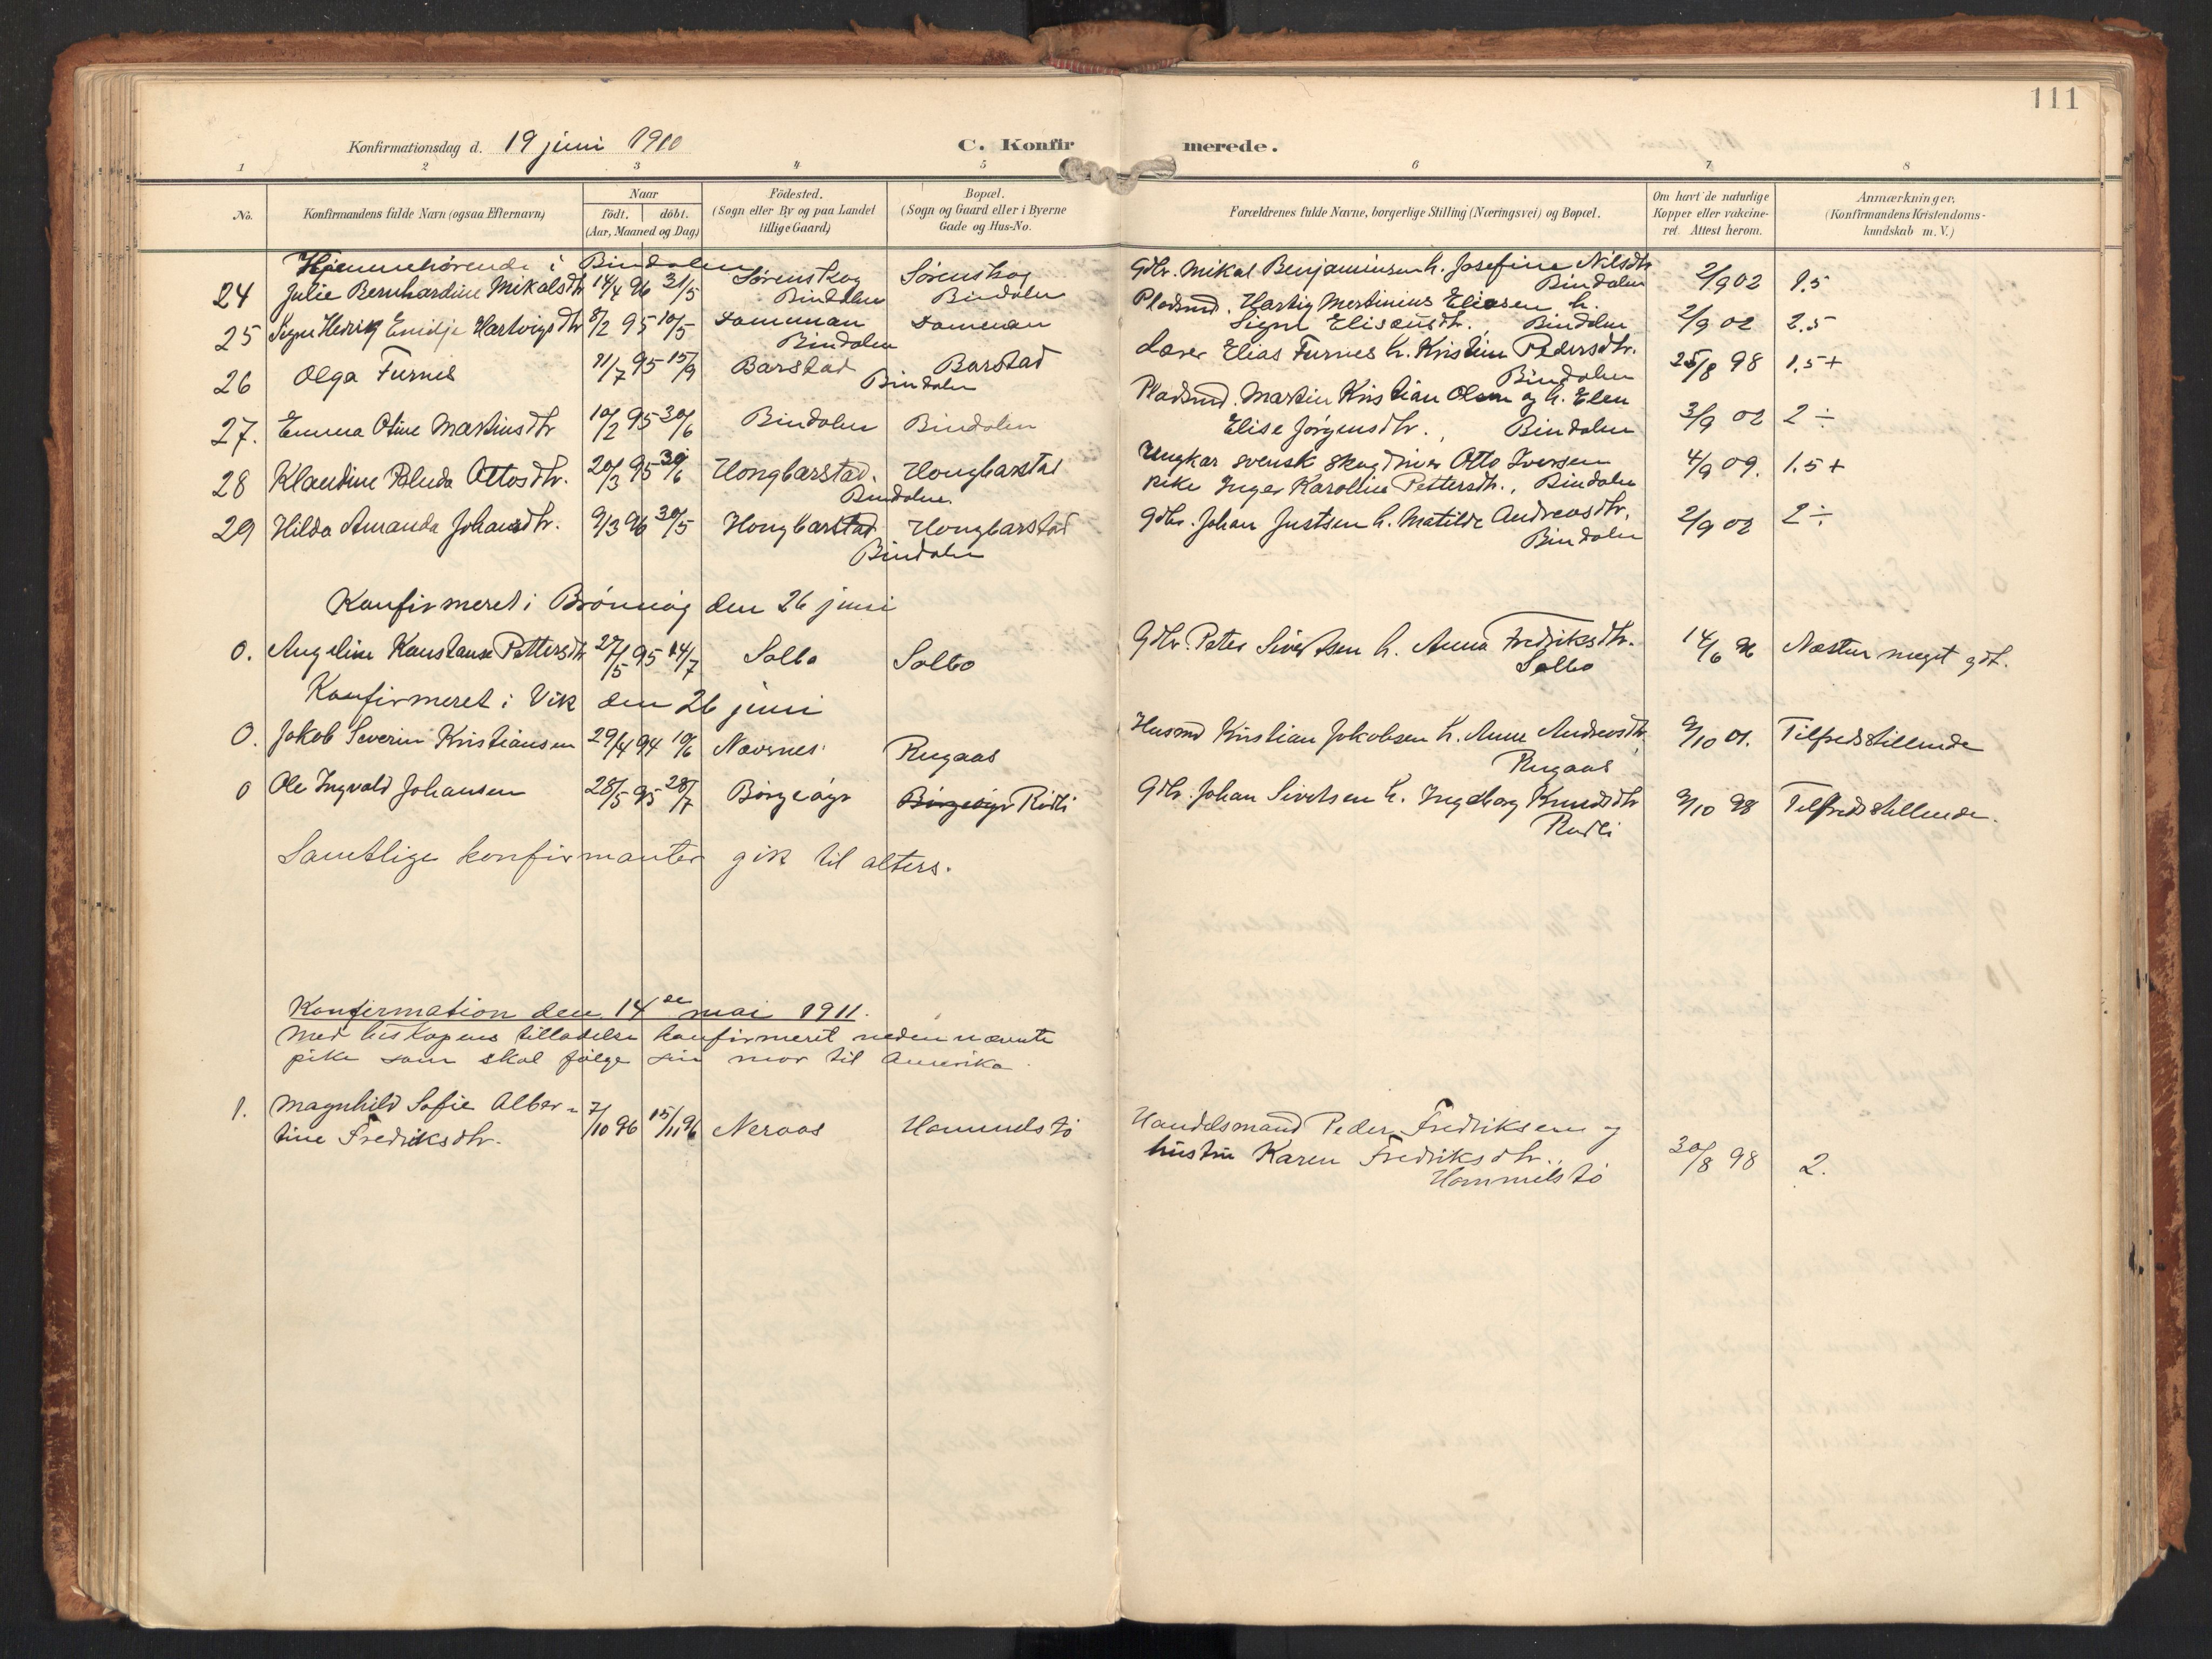 111
Konfirmationsdag d. 19 juni 1910
C. Konfirmerede.
1 2 3 4 5 6 7 8
No. Konfirmandens fulde Navn (ogsaa Efternavn) Naar født. døbt. (Aar, Maaned og Dag) Fødested. (Sogn eller By og paa Landet tillige Gaard) Bopæl. (Sogn og Gaard eller i Byerne Gade og Hus-No. Forældrenes fulde Navne, borgerlige Stilling (Næringsvei) og Bopæl. Om havt de naturlige Kopper eller vakcineret. Attest herom. Anmærkninger, (Konfirmandens Kristendomskundskab m. V.)
Hjemmehørende i Bindalen
24 Julie Bernhardine Mikalsdtr 14/4 96 31/5 Sørenskog Bindalen Sørenskog Bindalen Gdbr. Mikal Benjaminsen h. Josefine Nilsdtr Bindalen 2/9 02 1.5
25 Hartvigsdtr 8/2 95 10/5 Bindalen Pladsmd. Hartvig Mertinius Eliasen h. Signe Eliseusdtr. Bindalen 2/9 02 2.5
26 Olga Furnes 11/7 95 15/9 Barstad Bindalen Barstad Lærer Elias Furnes h. Kristine Pedersdtr. Bindalen 25/8 98 1.5+
27. Emma Otine Martinsdtr 10/2 95 30/6 Bindalen Bindalen Pladsmd. Martin Kristian Olsen og h. Elen Elise Jørgensdtr., Bindalen 3/9 02 2 ÷
28 Klaudine Ottosdtr. 20/3 95 30/6 Hongbarstad. Bindalen. Hongbarstad Ungkar svensk skogdriver Otto Iversen pike Inger Karoline Pettersdtr., Bindalen 4/9 09. 1.5+
29 Hilda Amanda Johansdtr. 9/3 96 30/5 Hongbarstad Bindalen Hongbarstad Gdbr. Johan Justsen h. Matilde Andreasdtr. Bindalen 2/9 02 2 ÷
Konfirmeret i Brønnøy den 26 juni
0. Angeline Konstanse Pettersdtr 27/5 95 14/7 Salbo Salbo Gdbr. Peter Sivertsen h. Anna Fredriksdtr. Salbo 14/6 96 Næsten meget godt.
Konfirmeret i Vik den 26 juni
0. Jakob Severin Kristiansen 29/4 94 10/6 Nævernes Rugaas Husmd Kristian Jakobsen h. Anne Andreasdtr, Rugaas 9/10 01. Tilfredsstillende
0 Ole Ingvald Johansen 28/5 95 28/7 Børgeøyr Børgeøyr Rødli Gdbr. Johan Sivertsen h. Ingeborg Knudsdtr Rødli 9/10 98 Tilfredsstillende.
Samtlige konfirmanter gik til alters.
Konfirmation den 14de mai 1911.
Med biskopens tilladelse konfirmeret nedennævnte
pike som skal følge sin mor til Amerika
1. Magnhild Sofie Albertine Fredriksdtr. 7/10 96 15/11 96 Neraas Hommelstø Handelsmand Peder Fredriksen og hustru Karen Fredriksdtr., Hommelstø 30/8 98 2.